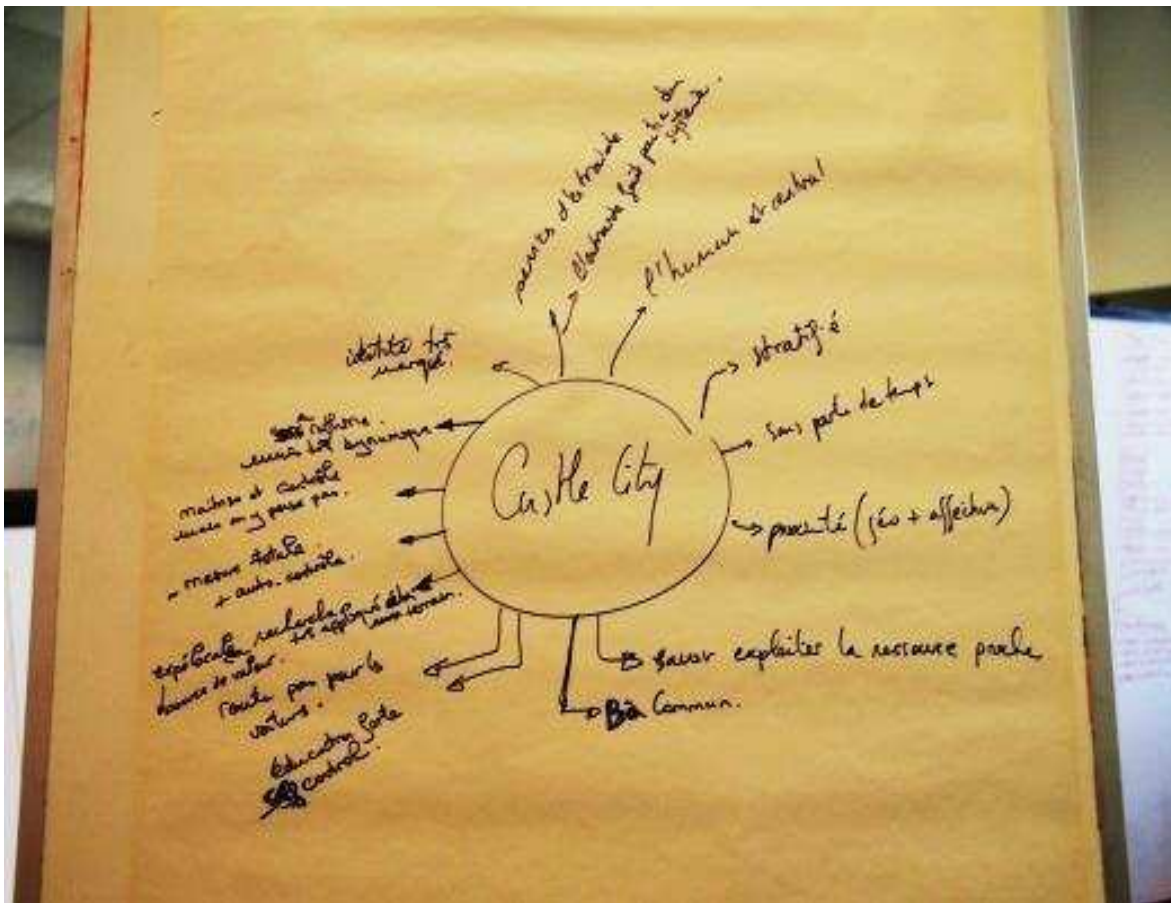 Castle City
services d'entraide
l'entraide fait partie du
système.
l'humain est central
stratifié
sans perte de temps
proximité (géo + affective)
savoir exploiter la ressource proche
Commun.
identité très
marqué.
mais très dynamique
maitrise et contrôle
mais on y pense pas.
mesure totale
+ auto-contrôle.
recherche
très appliqué
terrain.
source de valeur.
route pas pour les
voitures.
Education forte
control.